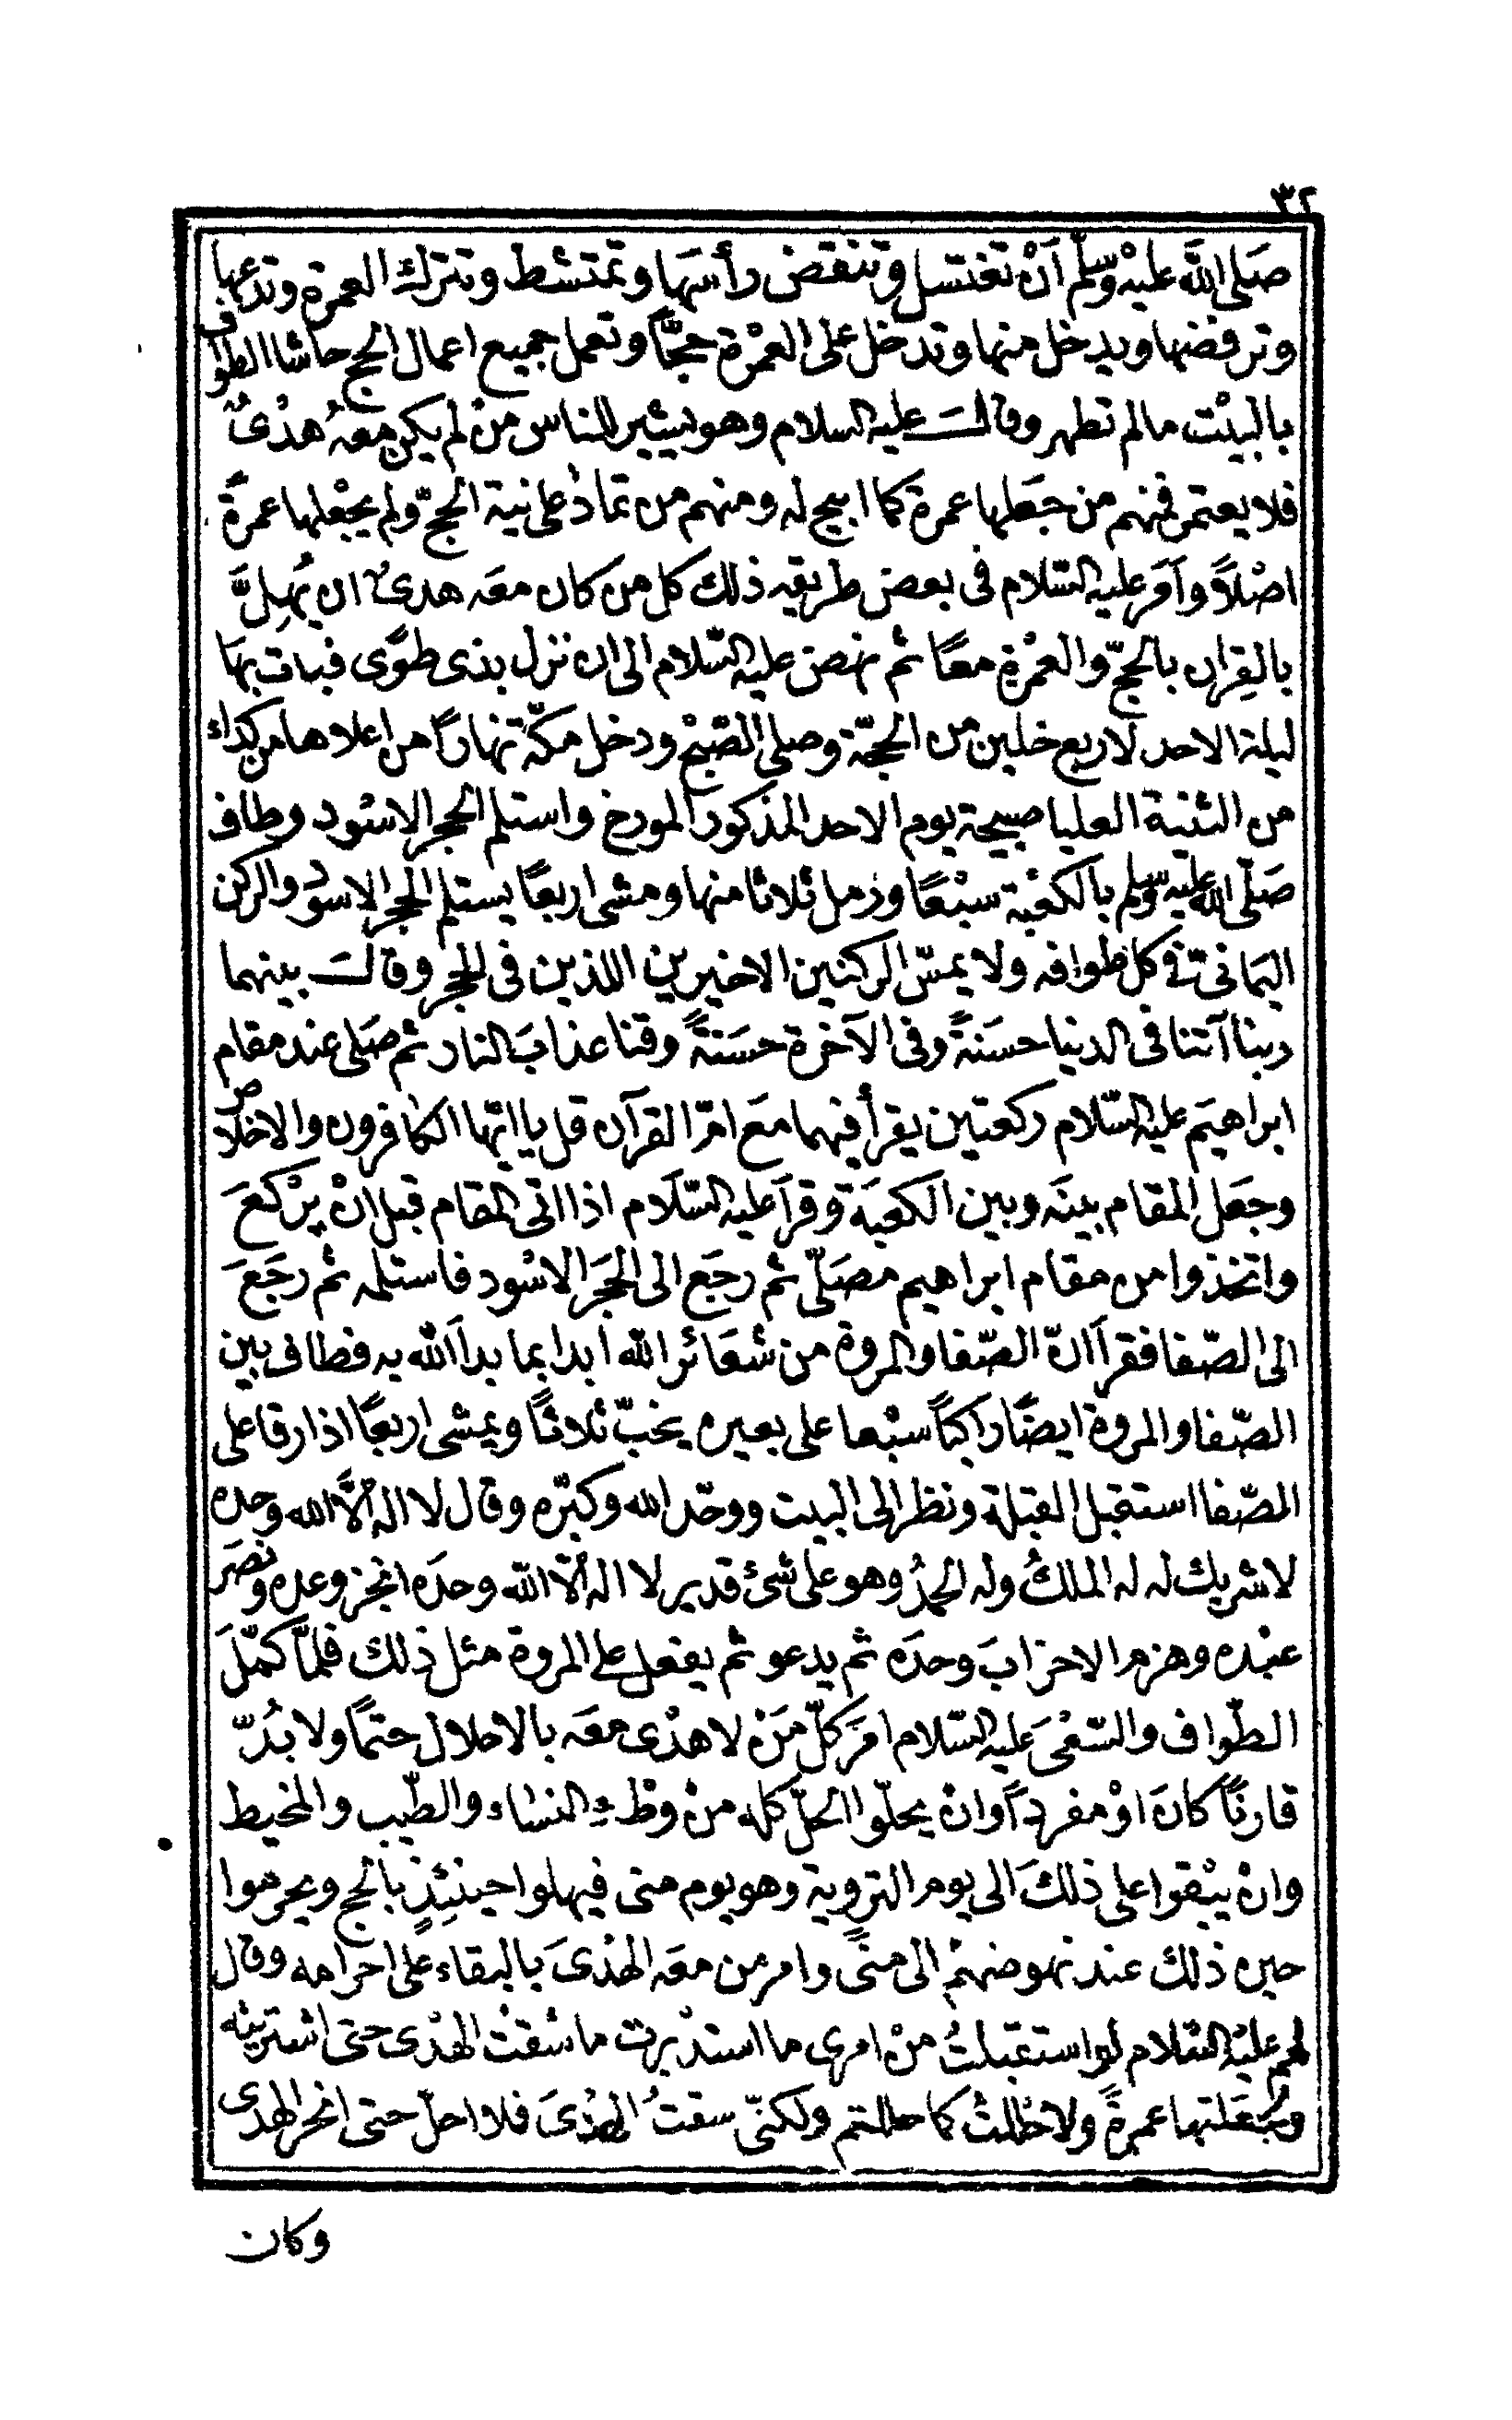 ٣٢
صَلى الله عليْه وسلّم اَنْ تغتسل وتنقض رأسَها وتمتشط وتترك العمرة وتدعها
وترفضها ويدخل منها وتدخل على العمْرة حجّاً وتعمل جميع اعمال الحج حاشا الطواف
بالبيْت مالم تطهر وقالـــَ عليه السلام وهو يشير للناس منْ لم يكن معَهُ هدْىٌ
فلا يعتمر فمنهم من جعَلها عمرة كما ابيح له ومنهم من تماد على نية الحجّ ولم يجْعلها عمرةً
اصْلاً وأمر عليه السّلام فى بعض طريقه ذلك كل من كان معَه هدىٌ ان يُهِلَّ
بالقِران بالحجّ والعمْرة معًا ثم نهض عليه السّلام الى ان نزل بذى طوًى فبات بهَا
ليلة الاحد لاربع خلين من الحجّة وصلى الصّبح ودخل مكّة نهارًا من اعلاها من كداء
من الثنية العليا صبيحة يوم الاحد المذكور المورخ واستلم الحجر الاسْود وطاف
صَلّى الله عليه وسلم بالكعْبة سبْعًا ورمل ثلاثا منها ومشى اربعًا يستلم الحجر الاسود والركن
اليمَانىّ فى كل طوافه ولا يمسّ الركنين الاخيرين اللذين فى الحجر وقالـــَ بينهما
ربنا آتنا فى الدنيا حسَنةً وفى الآخرة حسَنةً وقنا عذابَ النار ثم صَلى عند مقام
ابراهيَم عليه السّلام ركعتين يقرأ فيهما مَع امّ القرآن قل يا ايّها الكافرون والاخلاص
وجعَل المقام بينَه وبين الكعبَة وقرأ عليه السّلَام اذا اتى المقام قبل انْ يرْكعَ
واتخذوا من مقام ابراهيم مصَلّى ثم رجَع الى الحجَر الاسْود فاستلمه ثم رجَعَ
الى الصّفا فقرأ انّ الصّفا والمروة من شعَائر الله ابدا بما بدأ الله به فطاف بين
الصّفا والمروة ايضًا راكباً سبْعا على بعيره يخبّ ثلاثًا ويمشى اربعًا اذا رقا على
الصّفا استقبل القبلة ونظر الى البيت ووحّد الله وكبّره وقال لا اله الَّا الله وحده
لا شريك له له الملكُ وله الحمدُ وهو على شىء قدير لا اله الّا الله وحدَه انجز وعده ونصَر
عبْده وهزم الاحزابَ وحدَه ثم يدعو ثم يفعل على المروة مثل ذلك فلمّا كمّلَ
الطّواف والسّعْىَ عليه السّلام امَر كلّ مَنْ لا هدْى معَه بالاحلال حتمًا ولا بُدّ
قارنًا كانَ اوْ مفرداً وانْ يحلّوا الحلّ كله منْ وطْء النسَاء والطّيب والمخيط
وانْ يبْقوا على ذلكَ الى يوم التروية وهو يوم منى فيهلوا حينئِذٍ بالحج ويحرموا
حين ذلك عند نهوضهمْ الى منًى وامر من معَه الهدْىَ بالبقاء على احرامه وقال
لهم عليْه السّلام لو استقبلتُ منْ امرى ما استدْبرت ما سُقتْ الهدْى حتى اشتريته
وجَعَلتها عمرةً ولا حْللتُ كما حللتم ولكنّى سقتُ الهدْىَ فلا احلّ حتى انحر الهدى
وكان